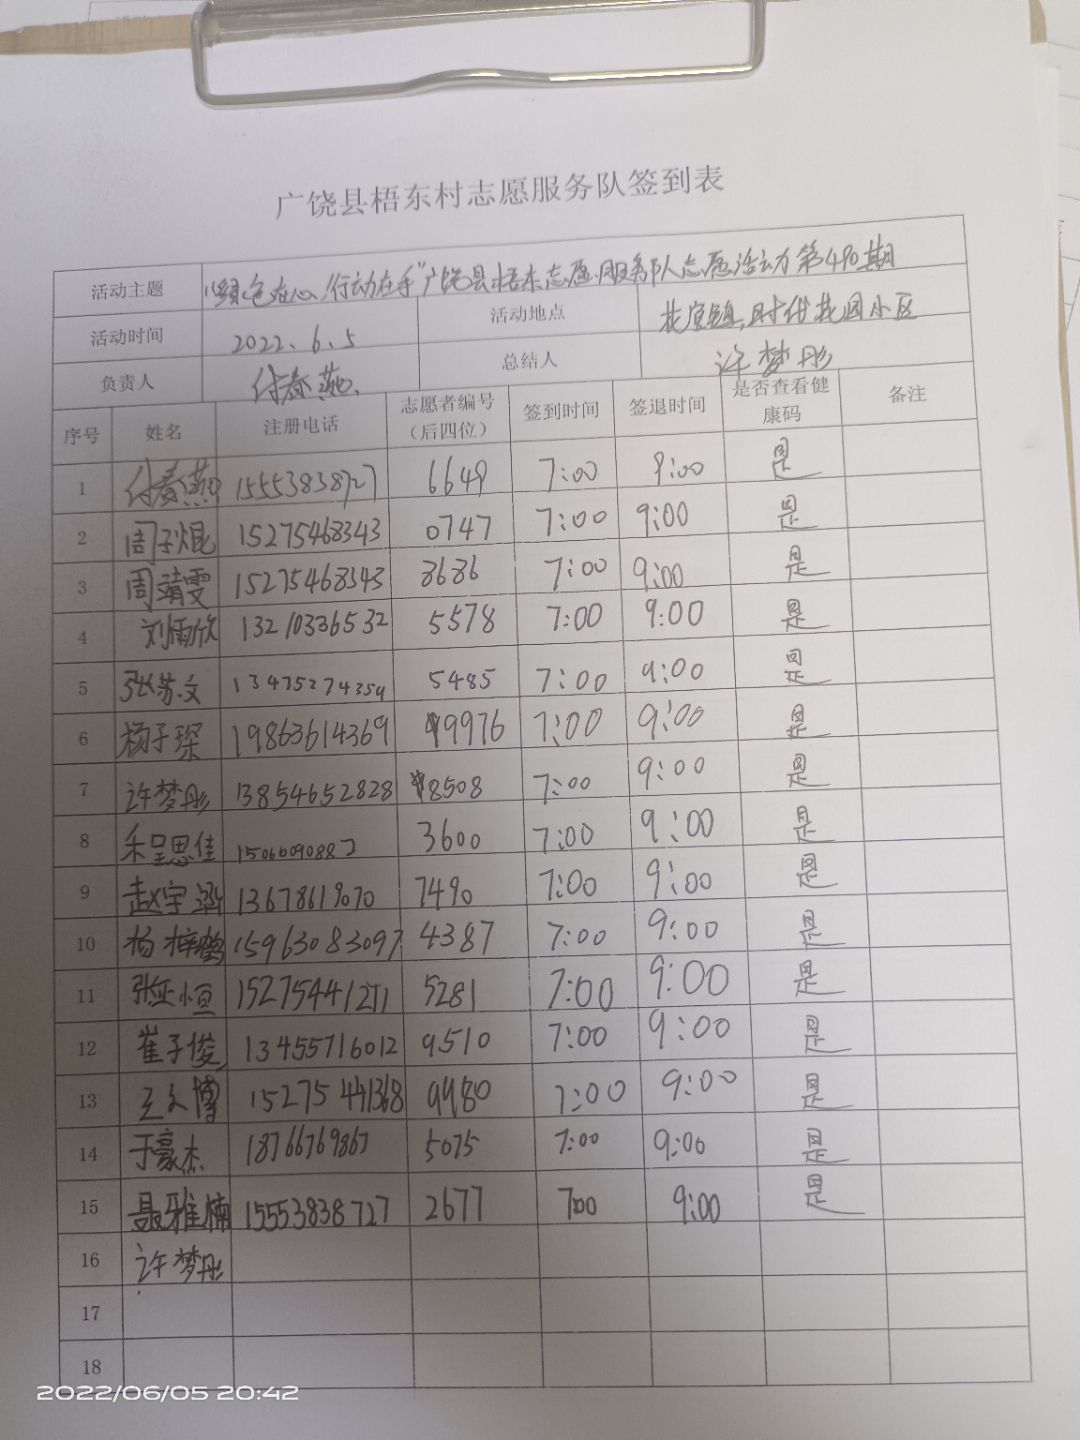 广饶县梧东村志愿服务队签到表
活动主题 "绿色在心、行动在手"广饶县梧东志愿服务队志愿活动第490期
活动时间 2022.6.5 活动地点 花官镇时代花园小区
负责人 付春燕 总结人 许梦彤
序号 姓名 注册电话 志愿者编号（后四位） 签到时间 签退时间 是否查看健康码 备注
1 付春燕 15553838727 6649 7:00 9:00 是
2 周子焜 15275468343 0747 7:00 9:00 是
3 周靖雯 15275468343 8686 7:00 9:00 是
4 刘雨欣 13210336532 5578 7:00 9:00 是
5 张苏文 13475274359 5485 7:00 9:00 是
6 杨子琛 19863614369 9976 7:00 9:00 是
7 许梦彤 13854652828 8508 7:00 9:00 是
8 程思佳 15066090882 3600 7:00 9:00 是
9 赵宇涵 13678619070 7490 7:00 9:00 是
10 杨梓鹤 15963083097 4387 7:00 9:00 是
11 张亚恒 15275441271 5281 7:00 9:00 是
12 崔子俊 13455716012 9510 7:00 9:00 是
13 王文博 15275441368 9980 7:00 9:00 是
14 于豪杰 18766769867 5075 7:00 9:00 是
15 聂雅楠 15553838727 2677 7:00 9:00 是
16 许梦彤
17
18
2022/06/05 20:42